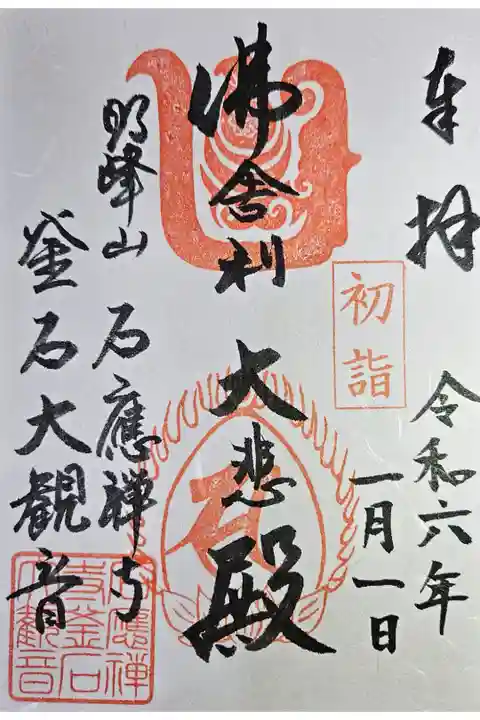 奉拝
初詣
令和六年
一月一日
佛舎利
大悲殿
明峰山 石應禅寺
釜石大観音
石應禅
寺釜石
大観音